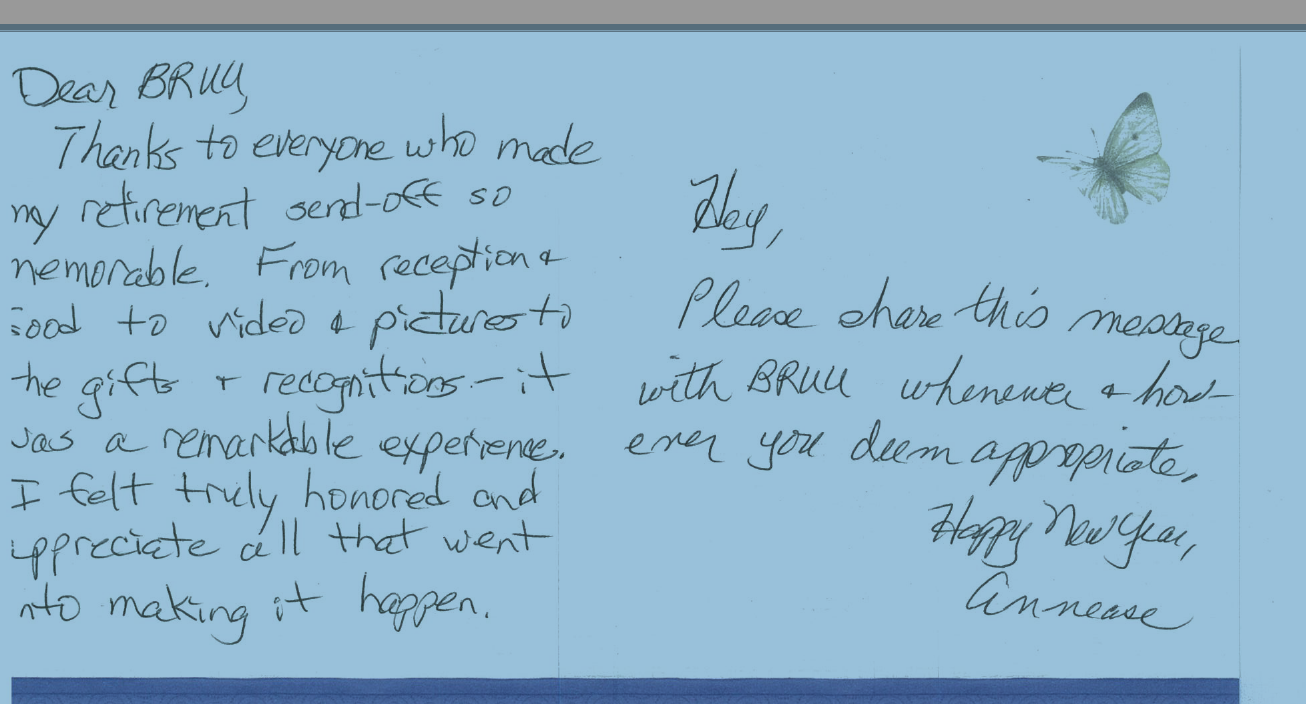 Dear BRUU,
Thanks to everyone who made
my retirement send-off so
memorable. From reception &
food to video & pictures to
the gifts & recognitions - it
was a remarkable experience.
I felt truly honored and
appreciate all that went
into making it happen.
Hey,
Please share this message
with BRUU whenever & how-
ever you deem appropriate.
Happy New Year,
Annease